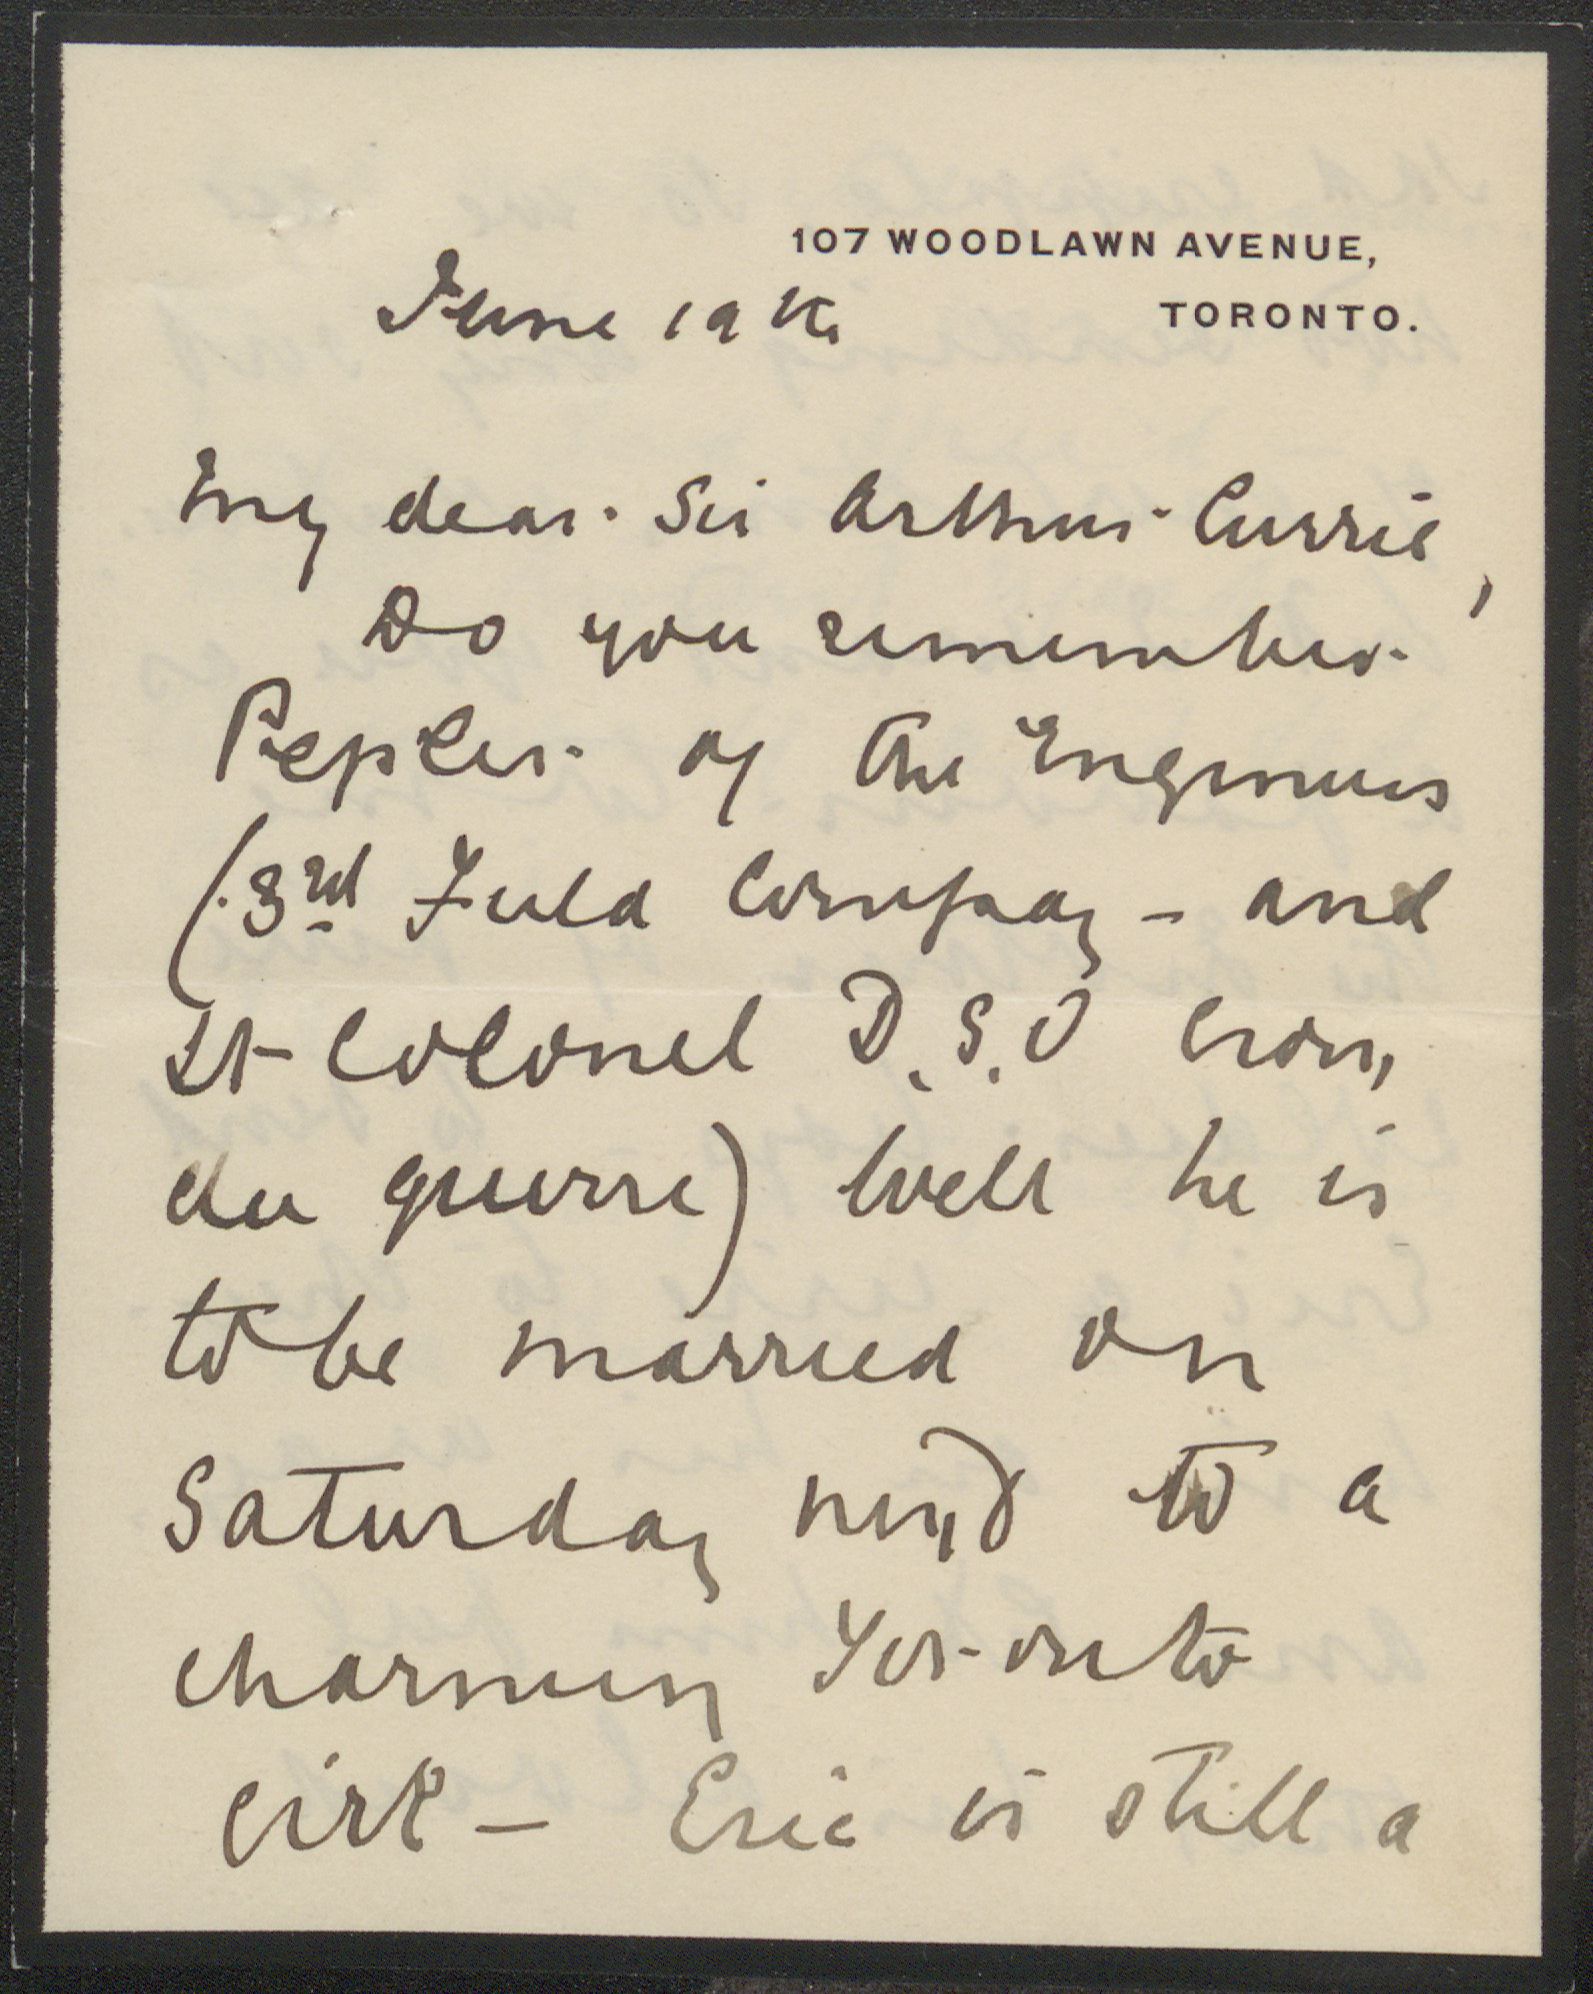 107 WOODLAWN AVENUE,
TORONTO.
June 19th
My dear Sir Arthur Currie,
Do you remember
Pepler of the Engineers
(3rd Field Company - and
Lt-Colonel D.S.O Croix
du guerre) Well he is
to be married on
Saturday next to a
charming Toronto
girl - Eric is still a